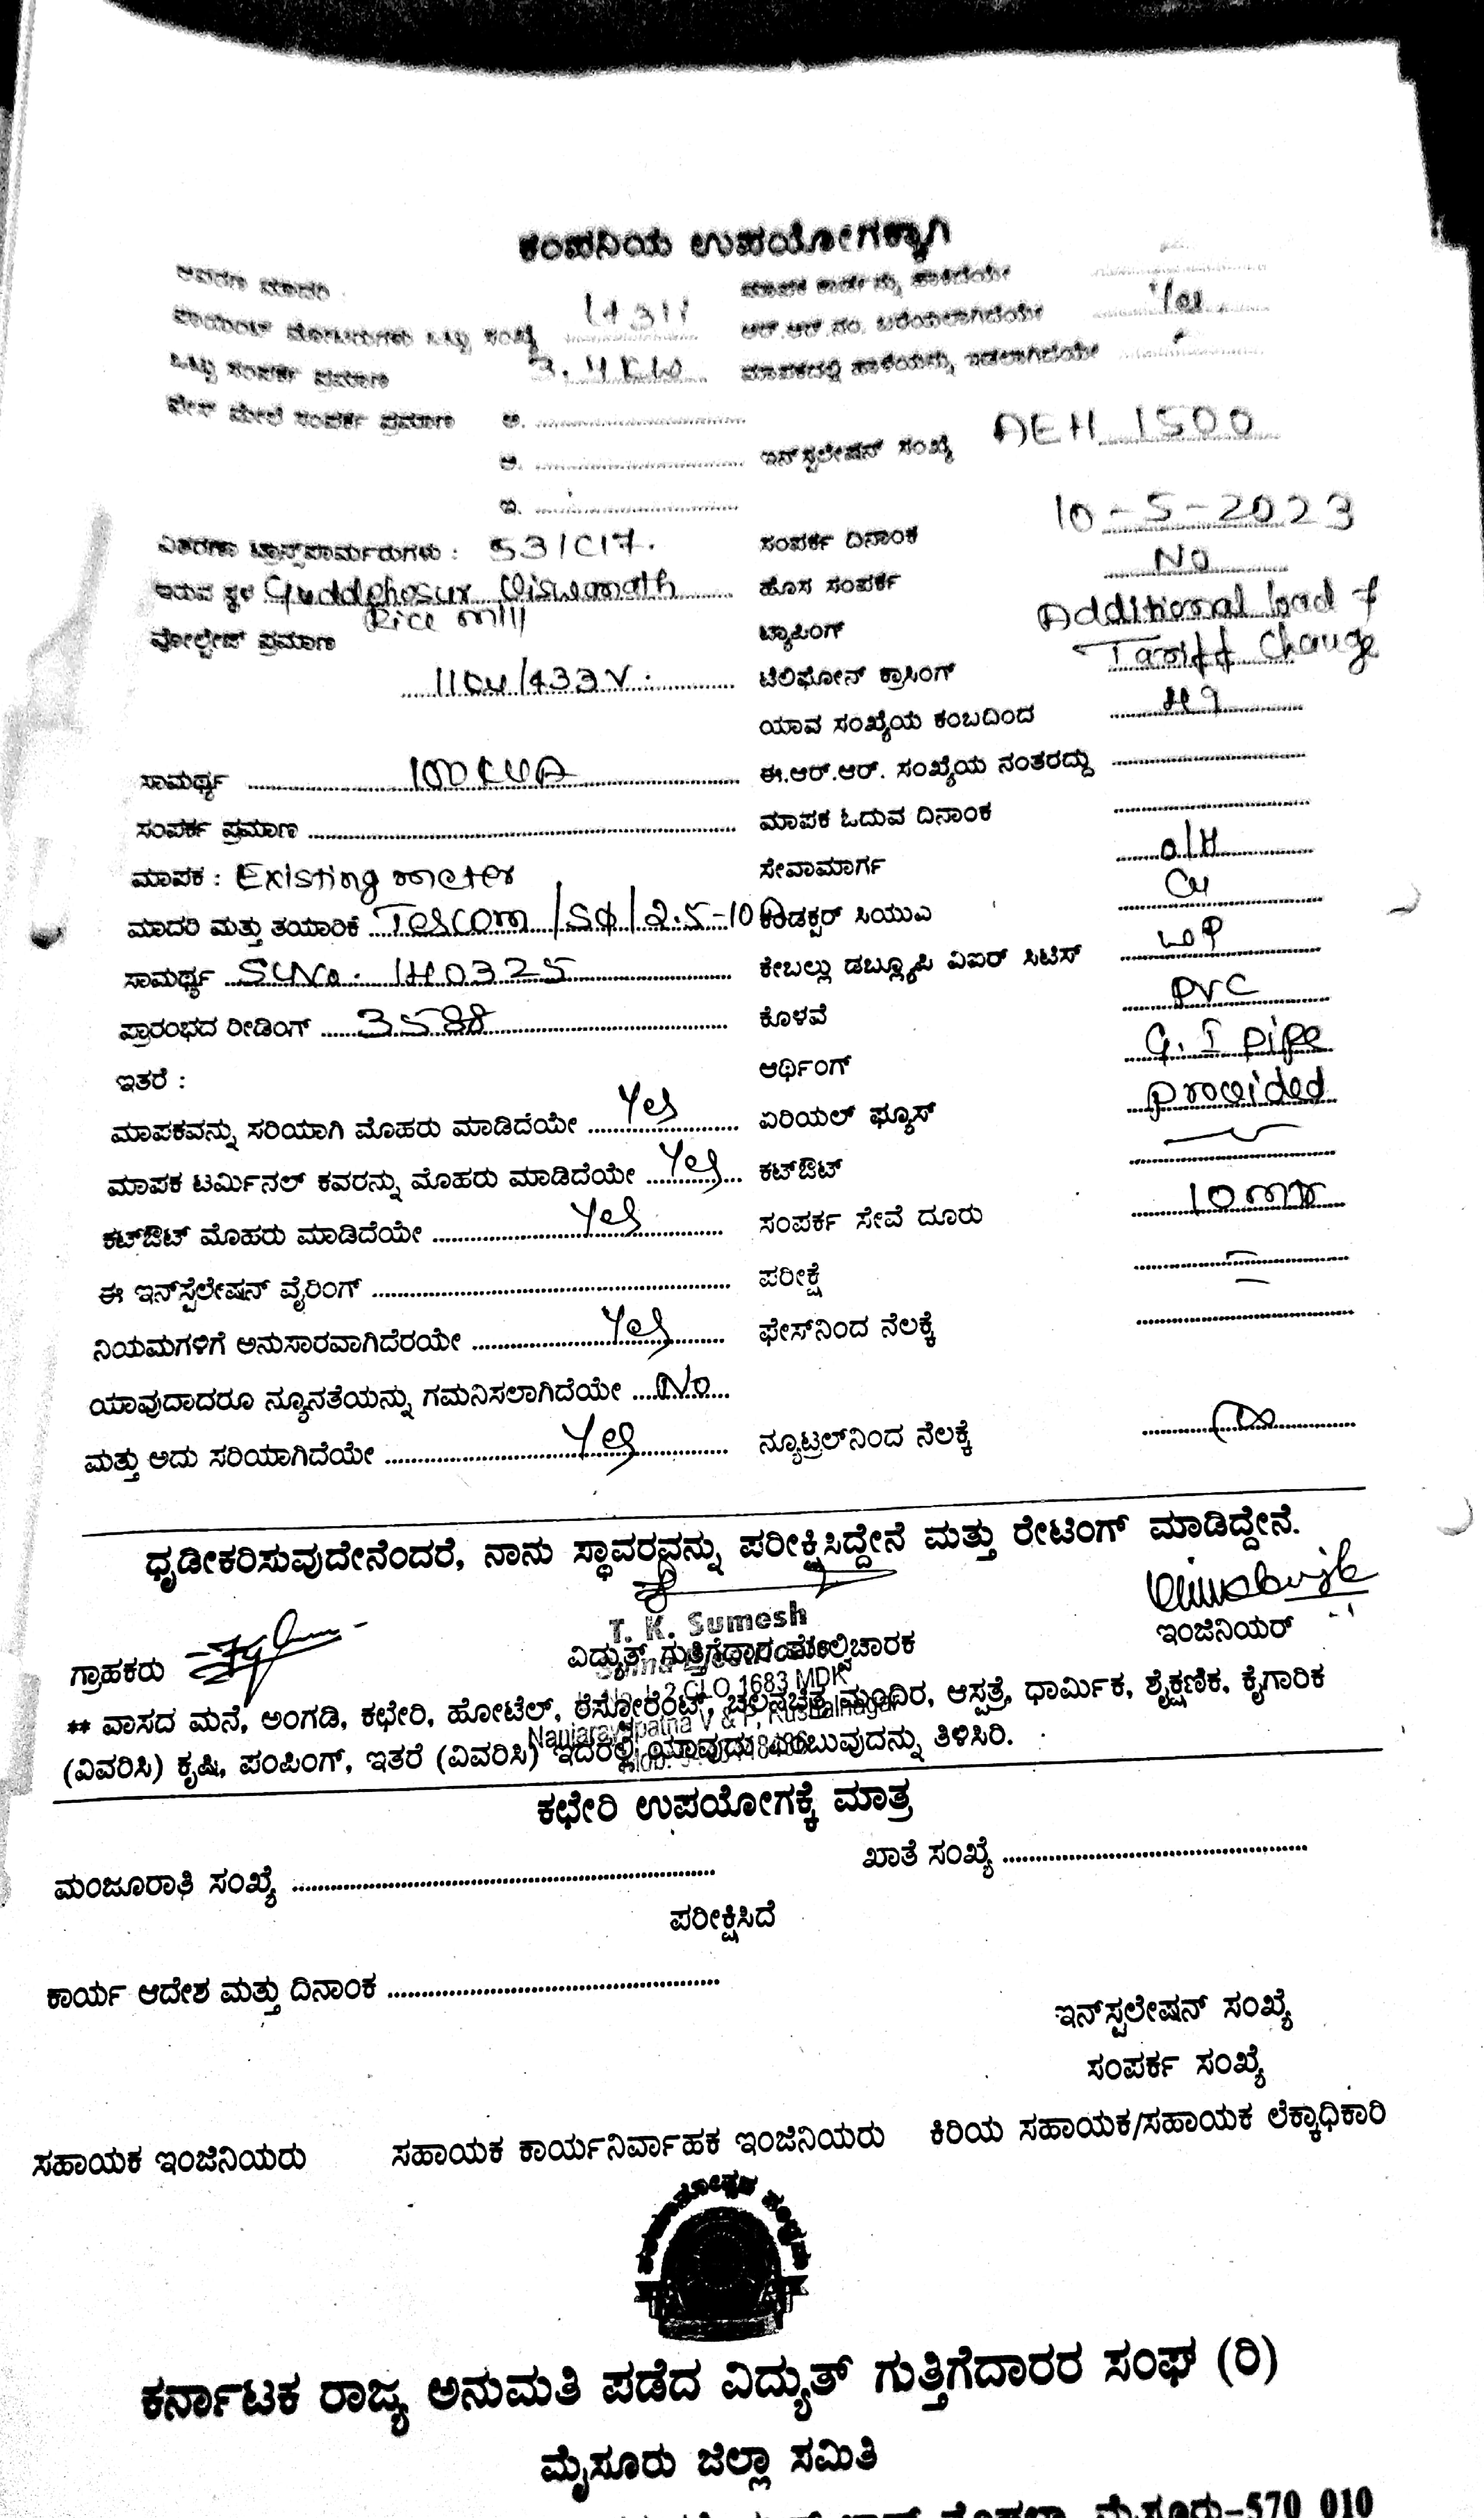 ಕಂಪನಿಯ ಉಪಯೋಗಕ್ಕಾಗಿ
ಆವರಣ ಮಾದರಿ ಮಾಪಕ ಕಾರ್ಡನ್ನು ಹಾಕಿದೆಯೇ
ಪಾಯಿಂಟ್ ಮೋಟಾರುಗಳು ಒಟ್ಟು ಸಂಖ್ಯೆ ಆರ್.ಆರ್.ನಂ. ಬರೆಯಲಾಗಿದೆಯೇ Yes.
ಒಟ್ಟು ಸಂಪರ್ಕ ಪ್ರಮಾಣ 3.4KW ಮಾಪಕದಲ್ಲಿ ಹಾಳೆಯನ್ನು ಇಡಲಾಗಿದೆಯೇ
ಫೇಸ್ ಮೇಲೆ ಸಂಪರ್ಕ ಪ್ರಮಾಣ ಅ. ..........
ಆ. .......... ಇನ್‌ಸ್ಟಲೇಷನ್ ಸಂಖ್ಯೆ AEH 1500
ಇ. ..........
ವಿತರಣಾ ಟ್ರಾನ್ಸ್‌ಫಾರ್ಮರುಗಳು : 531C17. ಸಂಪರ್ಕ ದಿನಾಂಕ 10-5-2023
ಇರುವ ಸ್ಥಳ Guddehosur Viswanath ಹೊಸ ಸಂಪರ್ಕ NO
Rice mill
ವೋಲ್ಟೇಜ್ ಪ್ರಮಾಣ ಟ್ಯಾಪಿಂಗ್ Additional load &
11KV/433V. ಟೆಲಿಫೋನ್ ಕ್ರಾಸಿಂಗ್ Tariff Change
ಯಾವ ಸಂಖ್ಯೆಯ ಕಂಬದಿಂದ
ಸಾಮರ್ಥ್ಯ 100KVA ಈ.ಆರ್.ಆರ್. ಸಂಖ್ಯೆಯ ನಂತರದ್ದು ..........
ಸಂಪರ್ಕ ಪ್ರಮಾಣ .......... ಮಾಪಕ ಓದುವ ದಿನಾಂಕ ..........
ಮಾಪಕ : Existing meter ಸೇವಾಮಾರ್ಗ O/H
ಮಾದರಿ ಮತ್ತು ತಯಾರಿಕೆ Tescom /Sφ/2.5-10A ಕಂಡಕ್ಟರ್ ಸಿಯುಎ Cu
ಸಾಮರ್ಥ್ಯ Sl.No. 1H0325 ಕೇಬಲ್ಲು ಡಬ್ಲ್ಯೂಪಿ ವಿಐರ್ ಸಿಟಿಸ್ WP
ಪ್ರಾರಂಭದ ರೀಡಿಂಗ್ 3588 ಕೊಳವೆ PVC
ಇತರೆ : ಆರ್ಥಿಂಗ್ G.I pipe
ಮಾಪಕವನ್ನು ಸರಿಯಾಗಿ ಮೊಹರು ಮಾಡಿದೆಯೇ Yes ಏರಿಯಲ್ ಫ್ಯೂಸ್ provided
ಮಾಪಕ ಟರ್ಮಿನಲ್ ಕವರನ್ನು ಮೊಹರು ಮಾಡಿದೆಯೇ Yes ಕಟ್‌ಔಟ್
ಕಟ್‌ಔಟ್ ಮೊಹರು ಮಾಡಿದೆಯೇ Yes ಸಂಪರ್ಕ ಸೇವೆ ದೂರು 10 mtr
ಈ ಇನ್‌ಸ್ಟೆಲೇಷನ್ ವೈರಿಂಗ್ .......... ಪರೀಕ್ಷೆ
ನಿಯಮಗಳಿಗೆ ಅನುಸಾರವಾಗಿದೆರಯೇ Yes ಫೇಸ್‌ನಿಂದ ನೆಲಕ್ಕೆ ..........
ಯಾವುದಾದರೂ ನ್ಯೂನತೆಯನ್ನು ಗಮನಿಸಲಾಗಿದೆಯೇ No
ಮತ್ತು ಅದು ಸರಿಯಾಗಿದೆಯೇ Yes ನ್ಯೂಟ್ರಲ್‌ನಿಂದ ನೆಲಕ್ಕೆ
ಧೃಡೀಕರಿಸುವುದೇನೆಂದರೆ, ನಾನು ಸ್ಥಾವರವನ್ನು ಪರೀಕ್ಷಿಸಿದ್ದೇನೆ ಮತ್ತು ರೇಟಿಂಗ್ ಮಾಡಿದ್ದೇನೆ.
T. K. Sumesh
ಗ್ರಾಹಕರು ವಿದ್ಯುತ್ ಗುತ್ತಿಗೆದಾರ ಮೇಲ್ವಿಚಾರಕ ಇಂಜಿನಿಯರ್
CLO 1683 MDK
** ವಾಸದ ಮನೆ, ಅಂಗಡಿ, ಕಛೇರಿ, ಹೋಟೆಲ್, ರೆಸ್ಟೋರೆಂಟ್, ಚಲನಚಿತ್ರ ಮಂದಿರ, ಆಸ್ಪತ್ರೆ, ಧಾರ್ಮಿಕ, ಶೈಕ್ಷಣಿಕ, ಕೈಗಾರಿಕ
Nanjarayapatna V & P, Kushalnagar
(ವಿವರಿಸಿ) ಕೃಷಿ, ಪಂಪಿಂಗ್, ಇತರೆ (ವಿವರಿಸಿ) ಇದರಲ್ಲಿ ಯಾವುದು ಎಂಬುವುದನ್ನು ತಿಳಿಸಿರಿ.
ಕಛೇರಿ ಉಪಯೋಗಕ್ಕೆ ಮಾತ್ರ
ಮಂಜೂರಾತಿ ಸಂಖ್ಯೆ .......... ಖಾತೆ ಸಂಖ್ಯೆ ..........
ಪರೀಕ್ಷಿಸಿದೆ
ಕಾರ್ಯ ಆದೇಶ ಮತ್ತು ದಿನಾಂಕ ..........
ಇನ್‌ಸ್ಟಲೇಷನ್ ಸಂಖ್ಯೆ
ಸಂಪರ್ಕ ಸಂಖ್ಯೆ
ಸಹಾಯಕ ಇಂಜಿನಿಯರು ಸಹಾಯಕ ಕಾರ್ಯನಿರ್ವಾಹಕ ಇಂಜಿನಿಯರು ಕಿರಿಯ ಸಹಾಯಕ/ಸಹಾಯಕ ಲೆಕ್ಕಾಧಿಕಾರಿ
ಕರ್ನಾಟಕ ರಾಜ್ಯ ಅನುಮತಿ ಪಡೆದ ವಿದ್ಯುತ್ ಗುತ್ತಿಗೆದಾರರ ಸಂಘ (ರಿ)
ಮೈಸೂರು ಜಿಲ್ಲಾ ಸಮಿತಿ
ಮೈಸೂರು-570 010